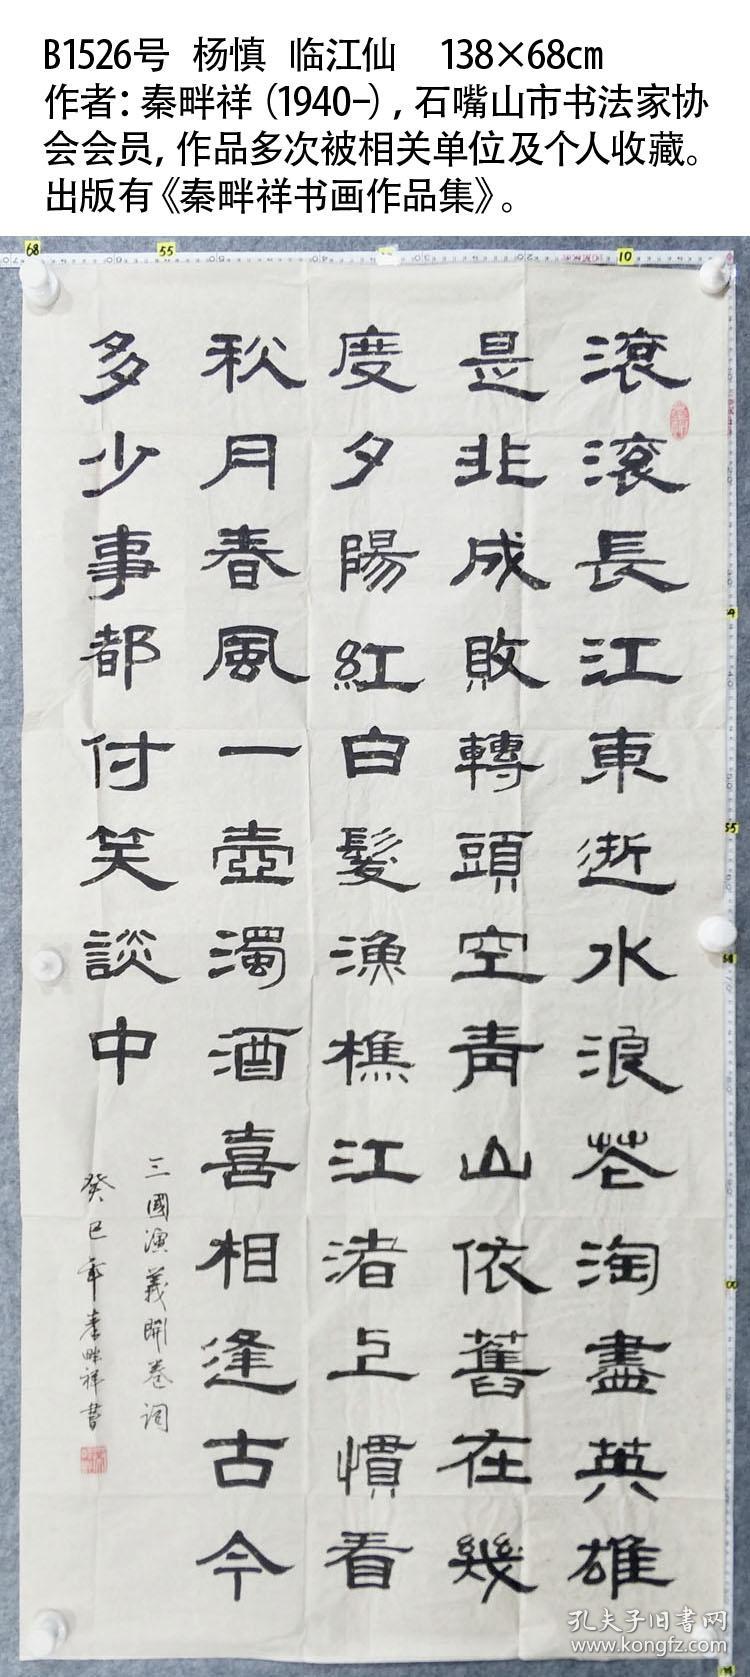 B1526号 杨慎 临江仙 138×68cm
作者：秦畔祥（1940-），石嘴山市书法家协
会会员，作品多次被相关单位及个人收藏。
出版有《秦畔祥书画作品集》。
滾滾長江東逝水浪花淘盡英雄
是非成敗轉頭空青山依舊在幾
度夕陽紅白髮漁樵江渚上慣看
秋月春風一壺濁酒喜相逢古今
多少事都付笑談中
三國演義開卷詞
癸巳年秦畔祥書
68
55
10
孔夫子旧书网
www.kongfz.com